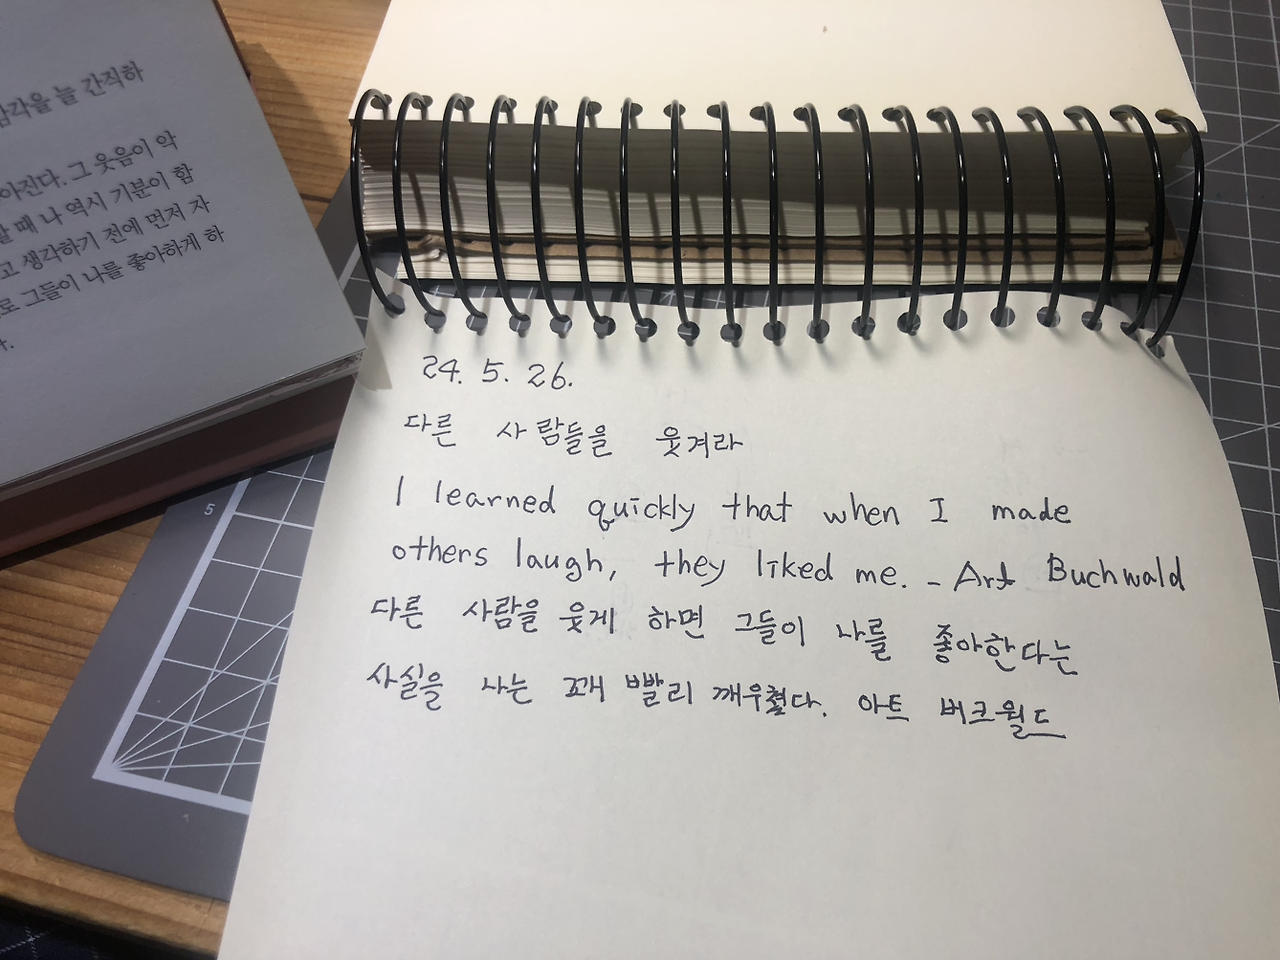 감각을 늘 간직하
아진다. 그 웃음이 악
할 때 나 역시 기분이 함
고 생각하기 전에 먼저 자
로 그들이 나를 좋아하게 하
다.
24. 5. 26.
다른 사람들을 웃겨라
I learned quickly that when I made
others laugh, they liked me. - Art Buchwald
다른 사람을 웃게 하면 그들이 나를 좋아한다는
사실을 나는 꽤 빨리 깨우쳤다. 아트 버크월드
5
1